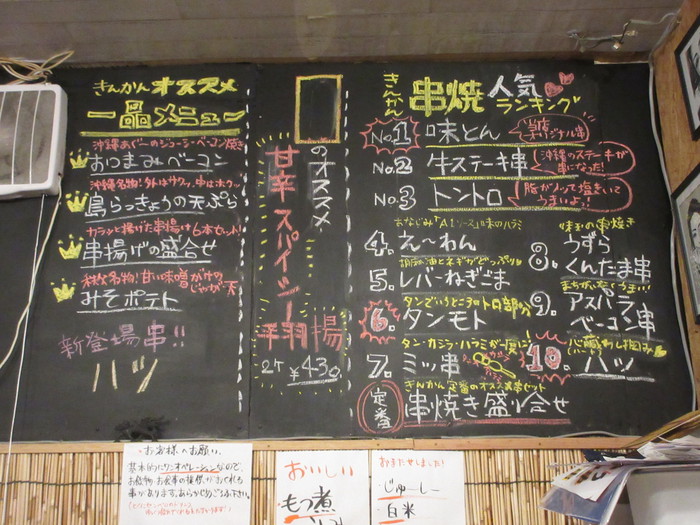 きんかんオススメ
一品メニュー
沖縄あぐーのジューシーベーコン焼き
おつまみベーコン
沖縄名物!外はサクッ、中はホクッ
島らっきょうの天ぷら
カラッと揚げた串揚げ6本セット!
串揚げの盛合せ
秩父名物!甘い味噌がけの
じゃが天
みそポテト
新登場串!!
ハツ
のオススメ
甘辛スパイシー
手羽揚
2ケ ¥430.
きんかん
串焼 人気
ランキング
No.1 味とん
当店
オリジナル串
No.2 牛ステーキ串
沖縄のステーキが
串になった!
No.3 トントロ
脂がノッて塩きいて
うまいよっ!
おなじみ「A1ソース」味のハラミ
4. え〜わん
調合油とネギがどっぷり
5. レバーねぎごま
タンでいうところのトロ部分
6. タンモト
タン・カシラ・ハラミが一度に!
7. ミッ串
味玉の串焼き
8. うずら
くんたま串
まちがいなくうまい!
9. アスパラ
ベーコン串
10. ハツ
きんかん定番のオススメ串セット
定番 串焼き盛り合せ
・お客様へお願い。
基本的にワンオペレーションなので、
お飲物・お食事の提供がおくれる
事があります。あらかじめご了承下さい。
おいしい
もつ煮
おまたせしました!
じゅーしー
・白米